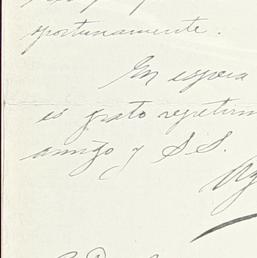 oportunamente.
En espera
es grato repetirm
amigo y S.S.